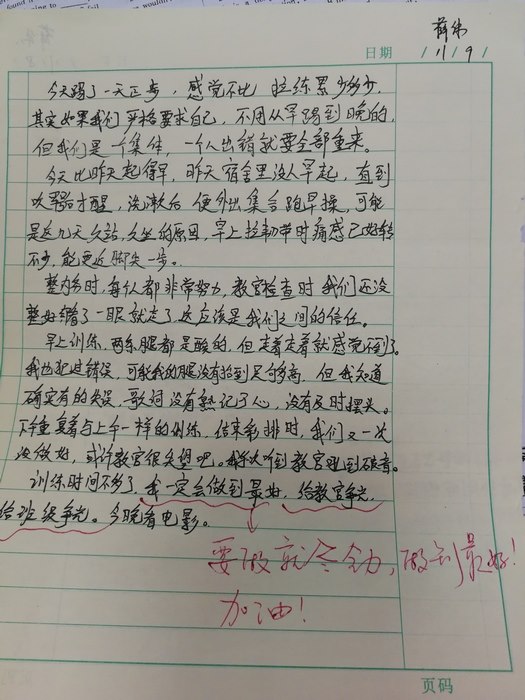 薛纬
日期 11/9/
今天踢了一天正步，感觉不比拉练累少多少，
其实如果我们严格要求自己，不用从早踢到晚的，
但我们是一个集体，一个人出错就要全部重来。
今天比昨天起得早，昨天宿舍里没人早起，直到
吹哨才醒，洗漱后便外出集合跑早操，可能
是这几天久站，久坐的原因，早上拉韧带时痛感已好转
不少，能更近脚尖一步。
整内务时，每人都非常努力，教官检查时我们还没
整好瞥了一眼就走了，这应该是我们之间的信任。
早上训练，两条腿都是酸的，但走着走着就感觉不到了。
我也犯过错误，可能我的腿没有抬到足够高，但我知道
确实有的失误，歌词没有熟记于心，没有及时摆头。
下午重复着与上午一样的训练，结束彩排时，我们又一次
没做好，或许教官很失望吧。我第一次听到教官吼到破音。
训练时间不多了，我一定会做到最好，给教官争光，
给班级争光。今晚看电影。
要做就尽全力，做到最好！
加油！
页码